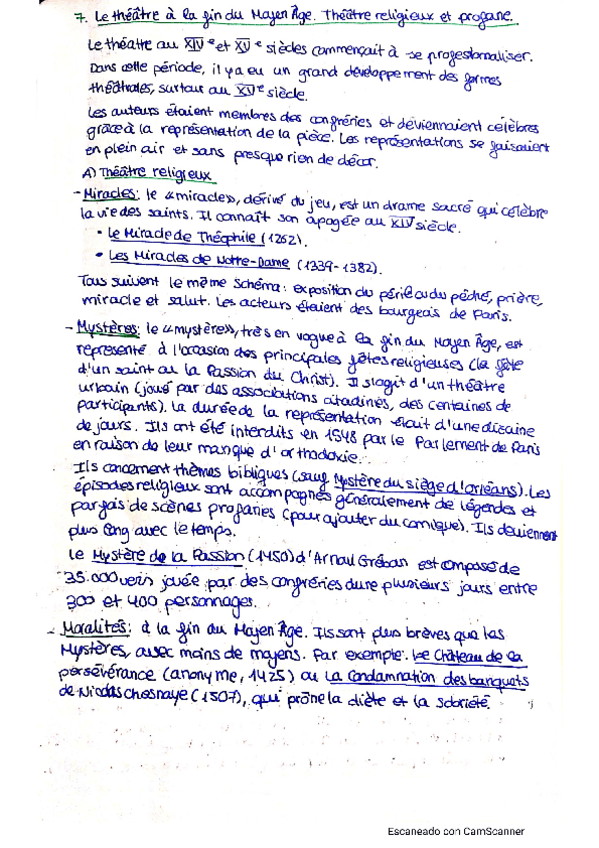 7. Le théâtre à la fin du Moyen Âge. Théâtre religieux et profane.
Le théâtre au XIVe et XVe siècles commençait à se professionnaliser.
Dans cette période, il y a eu un grand développement des formes
théâtrales, surtout au XVe siècle.
Les auteurs étaient membres des confréries et devienaient célèbres
grâce à la représentation de la pièce. Les représentations se faisaient
en plein air et sans presque rien de décor.
A) Théâtre religieux
- Miracles: le «miracle», dérivé du jeu, est un drame sacré qui célèbre
la vie des saints. Il connaît son apogée au XIV siècle.
• Le Miracle de Théophile (1262).
• Les Miracles de Notre-Dame (1339-1382).
Tous suivent le même schéma: exposition du péril ou du péché, prière,
miracle et salut. Les acteurs étaient des bourgeais de Paris.
- Mystères: le «mystère», très en vogue à la fin du Moyen Âge, est
représenté à l'occasion des principales fêtes religieuses (la fête
d'un saint ou la Passion du Christ). Il s'agit d'un théâtre
urbain (joué par des associations citadines, des centaines de
participants). La durée de la représentation était d'une dizaine
de jours. Ils ont été interdits en 1548 par le Parlement de Paris
en raison de leur manque d'orthodoxie.
Ils concernent thèmes bibliques (sauf Mystère du siège d'Orléans). Les
épisodes religieux sont accompagnés généralement de légendes et
parfois de scènes profanes (pour ajouter du comique). Ils deviennent
plus long avec le temps.
Le Mystère de la Passion (1450) d'Arnoul Gréban est composé de
35.000 vers jouée par des confréries dure plusieurs jours entre
300 et 400 personnages.
- Moralités: à la fin du Moyen Âge. Ils sont plus brèves que las
Mystères, avec moins de moyens. Par exemple: Le Château de la
persévérance (anonyme, 1425) ou La Condamnation des banquets
de Nicolas Chesnaye (1507), qui prône la diète et la sobriété.
Escaneado con CamScanner